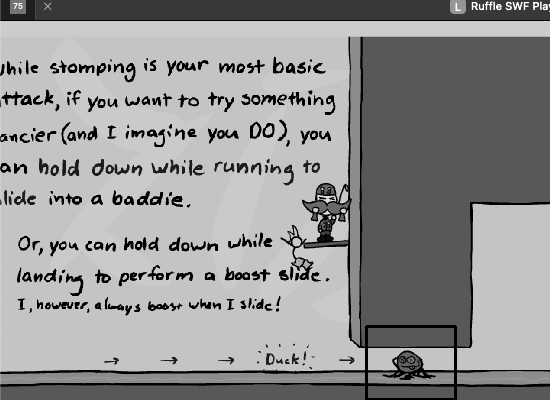 75
L Ruffle SWF Play
while stomping is your most basic
attack, if you want to try something
ancier (and I imagine you DO), you
an hold down while running to
slide into a baddie.
Or, you can hold down while
landing to perform a boost slide.
I, however, always boost when I slide!
Duck!